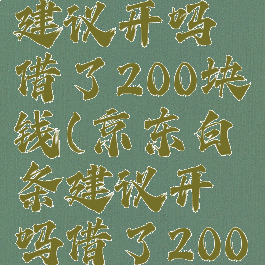 建议开吗
借了200块
钱(京东白
条建议开
吗借了200